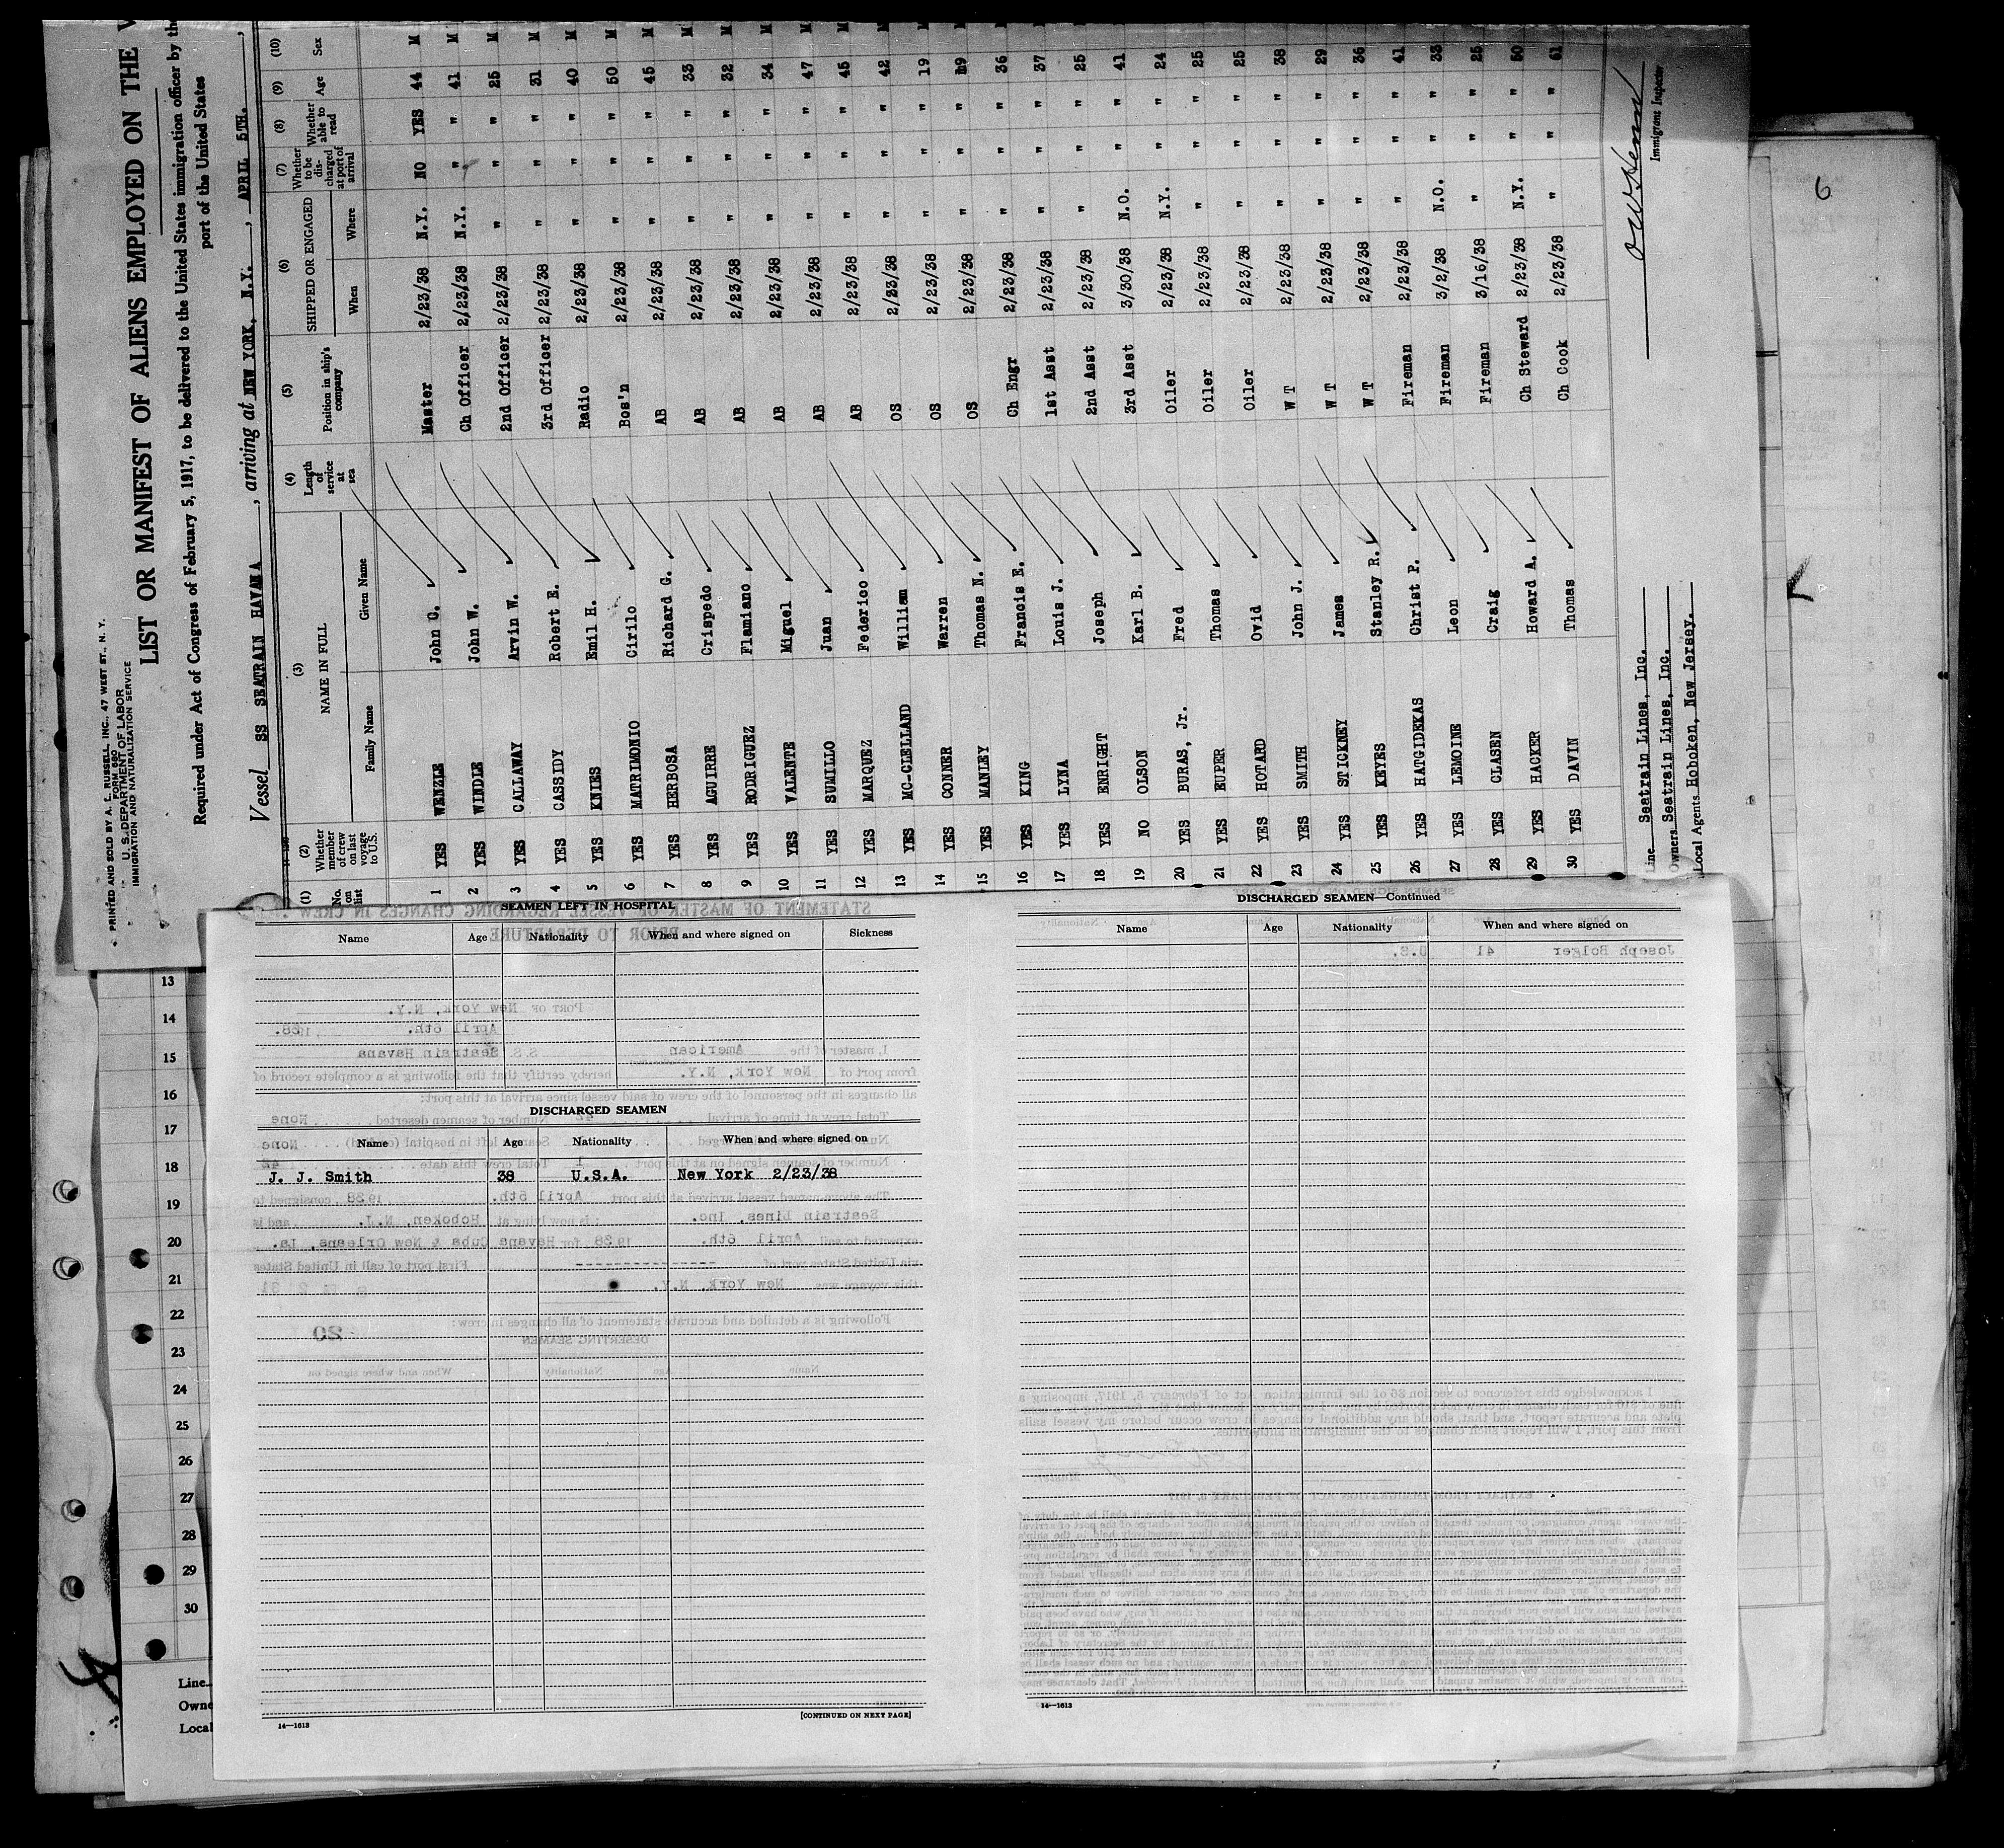 PRINTED AND SOLD BY A. L. RUSSELL, INC., 47 WEST ST., N. Y.
FORM 680
U. S. DEPARTMENT OF LABOR
IMMIGRATION AND NATURALIZATION SERVICE
LIST OR MANIFEST OF ALIENS EMPLOYED ON THE
Required under Act of Congress of February 5, 1917, to be delivered to the United States immigration officer by the
port of the United States
Vessel SS SEATRAIN HAVANA, arriving at NEW YORK, N.Y., APRIL 5TH.
(1) (2) (3) (4) (5) (6) (7) (8) (9) (10)
No. on list Whether member of crew on last voyage to U.S. NAME IN FULL Family Name Given Name Length of service at sea Position in ship's company SHIPPED OR ENGAGED When Where Whether to be discharged at port of arrival Whether able to read Age Sex
1 YES WENZLE John G. Master 2/23/38 N.Y. NO YES 44 M
2 YES WINDLE John W. Ch Officer 2/23/38 N.Y. " " 41 M
3 YES CALLAWAY Arvin W. 2nd Officer 2/23/38 " " " 25 M
4 YES CASSIDY Robert E. 3rd Officer 2/23/38 " " " 31 M
5 YES KNIES Emil H. Radio 2/23/38 " " " 40 M
6 YES MATRIMONIO Cirilo Bos'n 2/23/38 " " " 50 M
7 YES HERBOSA Richard G. AB 2/23/38 " " " 45 M
8 YES AGUIRRE Crispedo AB 2/23/38 " " " 33 M
9 YES RODRIGUEZ Flamiano AB 2/23/38 " " " 32 M
10 YES VALENTE Miguel AB 2/23/38 " " " 34 M
11 YES SUMILLO Juan AB 2/23/38 " " " 47 M
12 YES MARQUEZ Federico AB 2/23/38 " " " 45 M
13 YES MC-CLELLAND William OS 2/23/38 " " " 42 M
14 YES CONNER Warren OS 2/23/38 " " " 19 M
15 YES MANLEY Thomas N. OS 2/23/38 " " " 19 M
16 YES KING Francis E. Ch Engr 2/23/38 " " " 36 M
17 YES LYNA Louis J. 1st Asst 2/23/38 " " " 37 M
18 YES ENRIGHT Joseph 2nd Asst 2/23/38 " " " 25 M
19 NO OLSON Karl B. 3rd Asst 3/30/38 N.O. " " 41
20 YES BURAS, Jr. Fred Oiler 2/23/38 N.Y. " " 24
21 YES EUPER Thomas Oiler 2/23/38 " " " 25
22 YES HOTARD Ovid Oiler 2/23/38 " " " 25
23 YES SMITH John J. W T 2/23/38 " " " 38
24 YES STICKNEY James W T 2/23/38 " " " 29
25 YES KEYES Stanley R. W T 2/23/38 " " " 36
26 YES HATGIDEKAS Christ P. Fireman 2/23/38 " " " 41
27 YES LEMOINE Leon Fireman 3/2/38 N.O. " " 33
28 YES CLASEN Craig Fireman 3/16/38 " " " 25
29 YES HACKER Howard A. Ch Steward 2/23/38 N.Y. " " 50
30 YES DAVIN Thomas Ch Cook 2/23/38 " " " 61
Line Seatrain Lines, Inc.
Owners Seatrain Lines, Inc.
Local Agents Hoboken, New Jersey.
Immigrant Inspector
6
SEAMEN LEFT IN HOSPITAL
Name Age Nationality When and where signed on Sickness
DISCHARGED SEAMEN
Name Age Nationality When and where signed on
J. J. Smith 38 U.S.A. New York 2/23/38
14—1613
[CONTINUED ON NEXT PAGE]
DISCHARGED SEAMEN—Continued
Name Age Nationality When and where signed on
14—1613
13
14
15
16
17
18
19
20
21
22
23
24
25
26
27
28
29
30
Line
Owne
Local